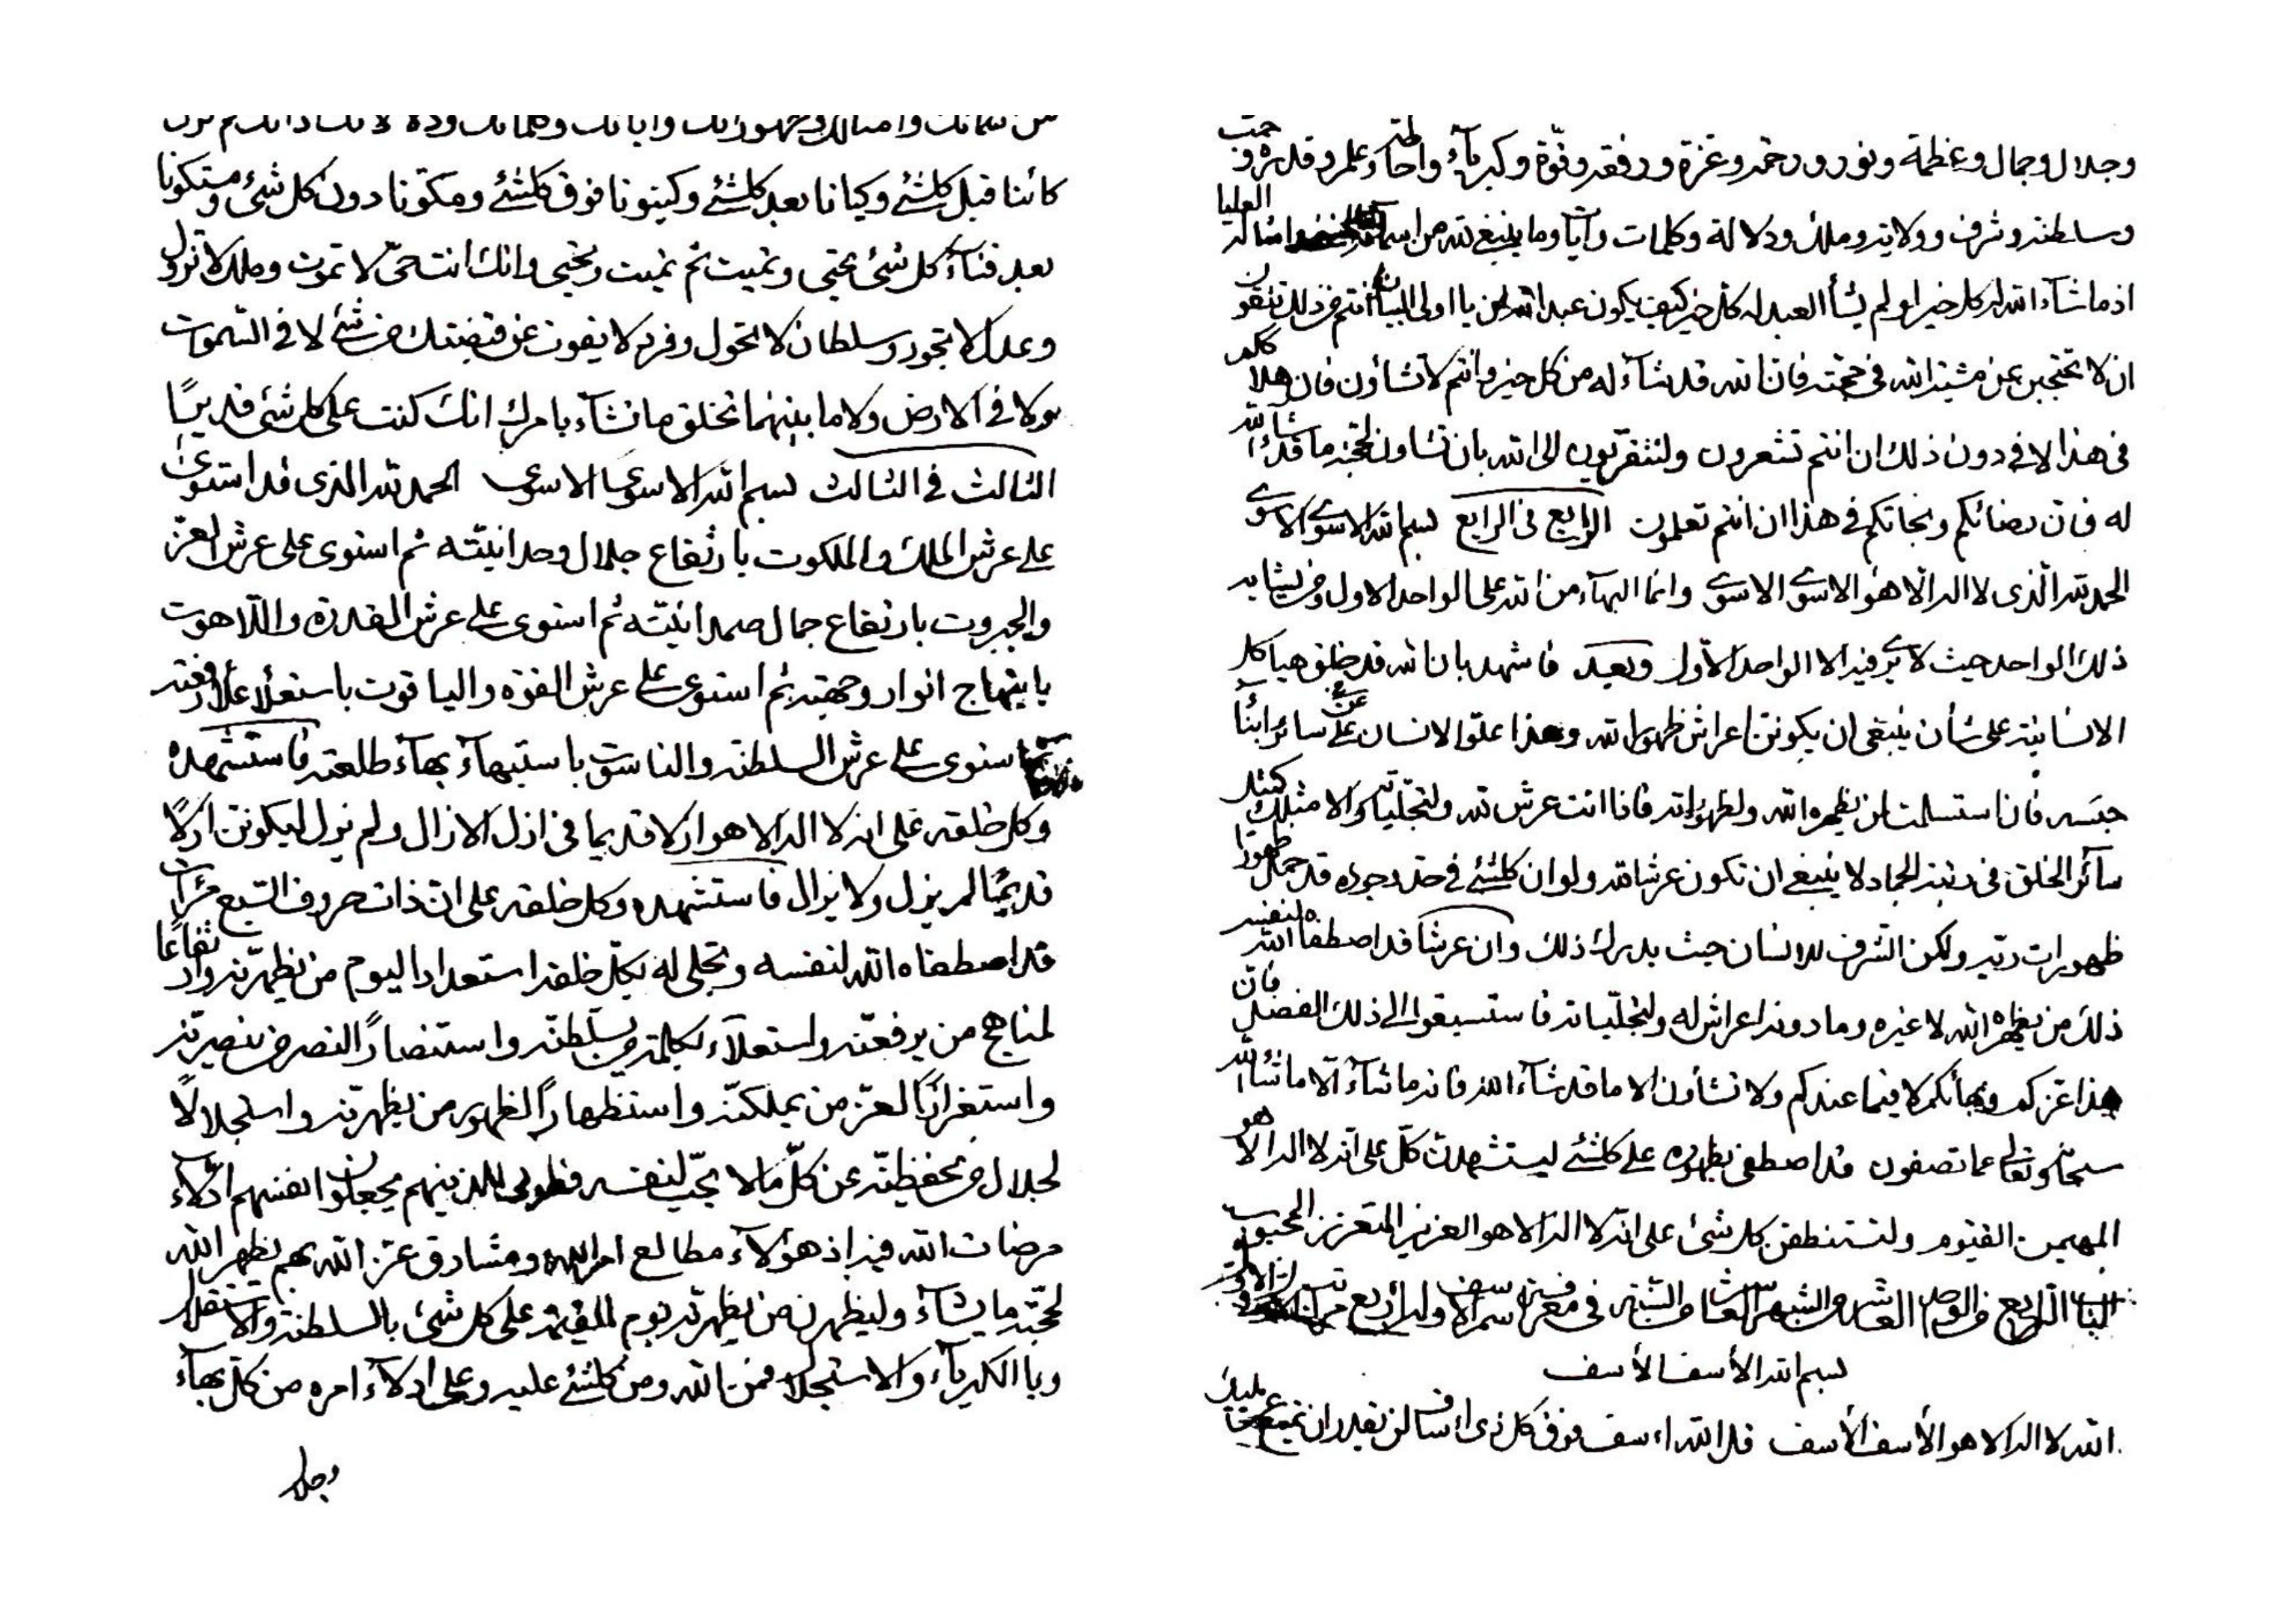 كائنا قبل كلشئ وكيانا بعد كلشئ وكينونا فوق كلشئ ومكونا دون كل شئ ومتكونا
بعد فناء كل شئ تحيى وتميت ثم تميت وتحيى وانك انت حى لا تموت وملك لا تزول
وعدل لا تجور وسلطان لا تحول وفرد لا يفوت عن قبضتك من شئ لا فى السموات
ولا فى الارض ولا ما بينهما تخلق ما تشآء بامرك انك كنت على كل شئ قديرًا
الثالث فى الثالث بسم الله الاسوى الاسوى الحمد لله الذى قد استوى
على عرش الملك والملكوت بارتفاع جلال وحدانيته ثم استوى على عرش العز
والجبروت بارتفاع جمال صمدانيته ثم استوى على عرش القدرة واللاهوت
بابتهاج انوار وجهته ثم استوى على عرش القوة والياقوت باستعلاء علاء رفعته
ثم استوى على عرش السلطنة والناسوت باستبهآء بهآء طلعته فاستشهده
وكل خلقه على انه لا اله الا هو ازلا قديما فى ازل الازال ولم يزل ليكونن ازلًا
قديمًا لم يزل ولا يزال فاستشهده وكل خلقه على ان ذات حروف السبع مرآت
قد اصطفاه الله لنفسه وتجلى له بكل خلقه استعدادا ليوم من يظهرنه وارتفاعا
لمناهج من يرفعنه واستعلاء لكلمة من يسلطنه واستنصارًا لنصر من ينصرنه
واستعزازًا لعز من يملكنه واستظهارًا لظهور من يظهرنه واستجلالًا
لجلال من يحفظنه عن كل ما لا يحب لنفسه فطوبى للذينهم يجعلون انفسهم ادلآء
مرضات الله فيه اذ هؤلآء مطالع امر الله ومشارق عز الله بهم يظهر الله
لحجته ما يشآء وليظهرنه من يظهرنه يوم القيمة على كل شئ بالسلطنة والاستقلال
وبالكبريآء والاستجلال فمن الله ومن كلشئ عليه وعلى ادلآء امره من كل بهآء
وجلا
وجلال وجمال وعظمة ونور ورحمة وعزة ورفعة وقوة وكبريآء واحاطة وعلم وقدرة وحب
وسلطنة وشرف وولاية وملك ودلالة وكلمات وآيات وما ينبغى لله من اسمائه وامثاله العليا
اذ ما شآء الله له كل خير اولم يشأ العبد له كل خير كيف يكون عبدا لله لمن يا اولى البيان انتم من ذلك تتقون
ان لا تحتجبن عن مشية الله فى حجته فان الله قد شآء له من كل خير وانتم لا تشاؤن فان هلاككم
فى هذا لا فى دون ذلك ان انتم تشعرون ولتتقربون الى الله بان تشاون لحجته ما قد شآء الله
له فان رضائكم ونجاتكم فى هذا ان انتم تعلمون الرابع فى الرابع بسم الله الاسوى الاسوى
الحمد لله الذى لا اله الا هو الاسوى الاسوى وانما البهآء من الله على الواحد الاول ومن يشابه
ذلك الواحد حيث لا يرى فيه الا الواحد الاول وبعد فاشهد بان الله قد خلق هياكل
الانسانية على شأن ينبغى ان يكونن اعراش ظهور الله وهذا علو الانسان على سائر ابنآء
جنسه فان استسلمت لمن يظهره الله ولظهوراته فاذا انت عرش لله ولتجلياته والا مثلك كمثل
سآئر الخلق فى رتبة الجماد لا ينبغى ان تكون عرشا لله ولو ان كلشئ فى حد وجوده قد حمل ظهورا
ظهورات ربه ولكن الشرف للانسان حيث يدرك ذلك وان عرشا قد اصطفاه الله لنفسه
ذلك من يظهره الله لا غيره وما دونه اعراش له ولتجلياته فاستسبقوا الى ذلك الفضل فان
هذا عزكم وبهآئكم لا فيما عندكم ولا تشاؤن الا ما قد شآء الله فانه ما شآء الا ما شآء الله
سبحانه وتعالى عما تصفون قد اصطفى بظهوره على كلشئ ليستشهدن كل على انه لا اله الا هو
المهيمن القيوم ولتستنطقن كل شئ على انه لا اله الا هو العزيز المتعزز المحبوب
الباب الرابع من الواحد العاشر من الشهر العاشر من السنة فى معرفة اسم الاسف وله اربع مراتب الاول
بسم الله الأسف الأسف
الله لا اله الا هو الأسف الأسف قل الله اءسف فوق كل ذى اءساف لن يقدر ان يمتنع عن مليك